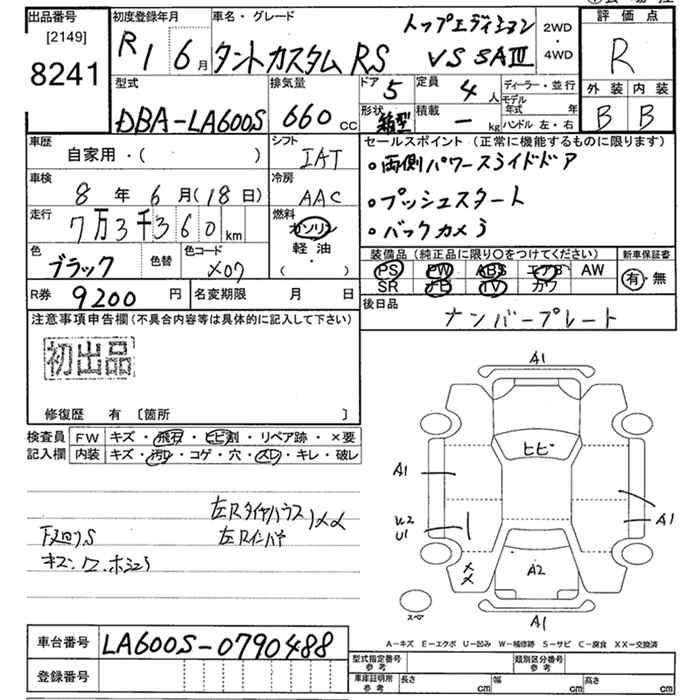 出品番号
[2149]
8241
初度登録年月
R1 6月
車名・グレード
タントカスタム RS
トップエディション
VS SAⅢ
2WD
・
4WD
評価点
R
外装 内装
B B
型式
DBA-LA600S
排気量
660 cc
ドア 5
定員 4人
形状 箱型
積載 - kg
ディーラー・並行
モデル年式 年
ハンドル 左・右
車歴
自家用・( )
シフト
IAT
車検
8年 6月(18日)
冷房
AAC
走行
7万3千360 km
燃料
ガソリン
軽・油
( ・ )
色
ブラック
色替
色コード
X07
R券 9200円
名変期限 月 日
セールスポイント(正常に機能するものに限ります)
・両側パワースライドドア
・プッシュスタート
・バックカメラ
装備品(純正品に限り○をつけてください)
新車保証書
PS PW ABS エアB AW
SR ナビ TV カワ
有・無
後日品
ナンバープレート
注意事項申告欄(不具合内容等は具体的に記入して下さい)
初出品
修復歴 有 〔箇所 〕
検査員記入欄
FW キズ・飛石・ヒビ割・リペア跡・×要
内装 キズ・汚れ・コゲ・穴・スレ・キレ・破レ
左Rタイヤハウス
左Rインパネ
XX
下廻りS
キズ
A1
ヒビ
A1
U2
U1
A1
XX
A2
スペア
A1
A-キズ E-エクボ U-凹み W-補修跡 S-サビ C-腐食 XX-交換済
車台番号
LA600S-0790488
登録番号
型式指定番号
参考
類別区分番号
参考
車庫証明用
参考
長さ cm
幅 cm
高さ cm